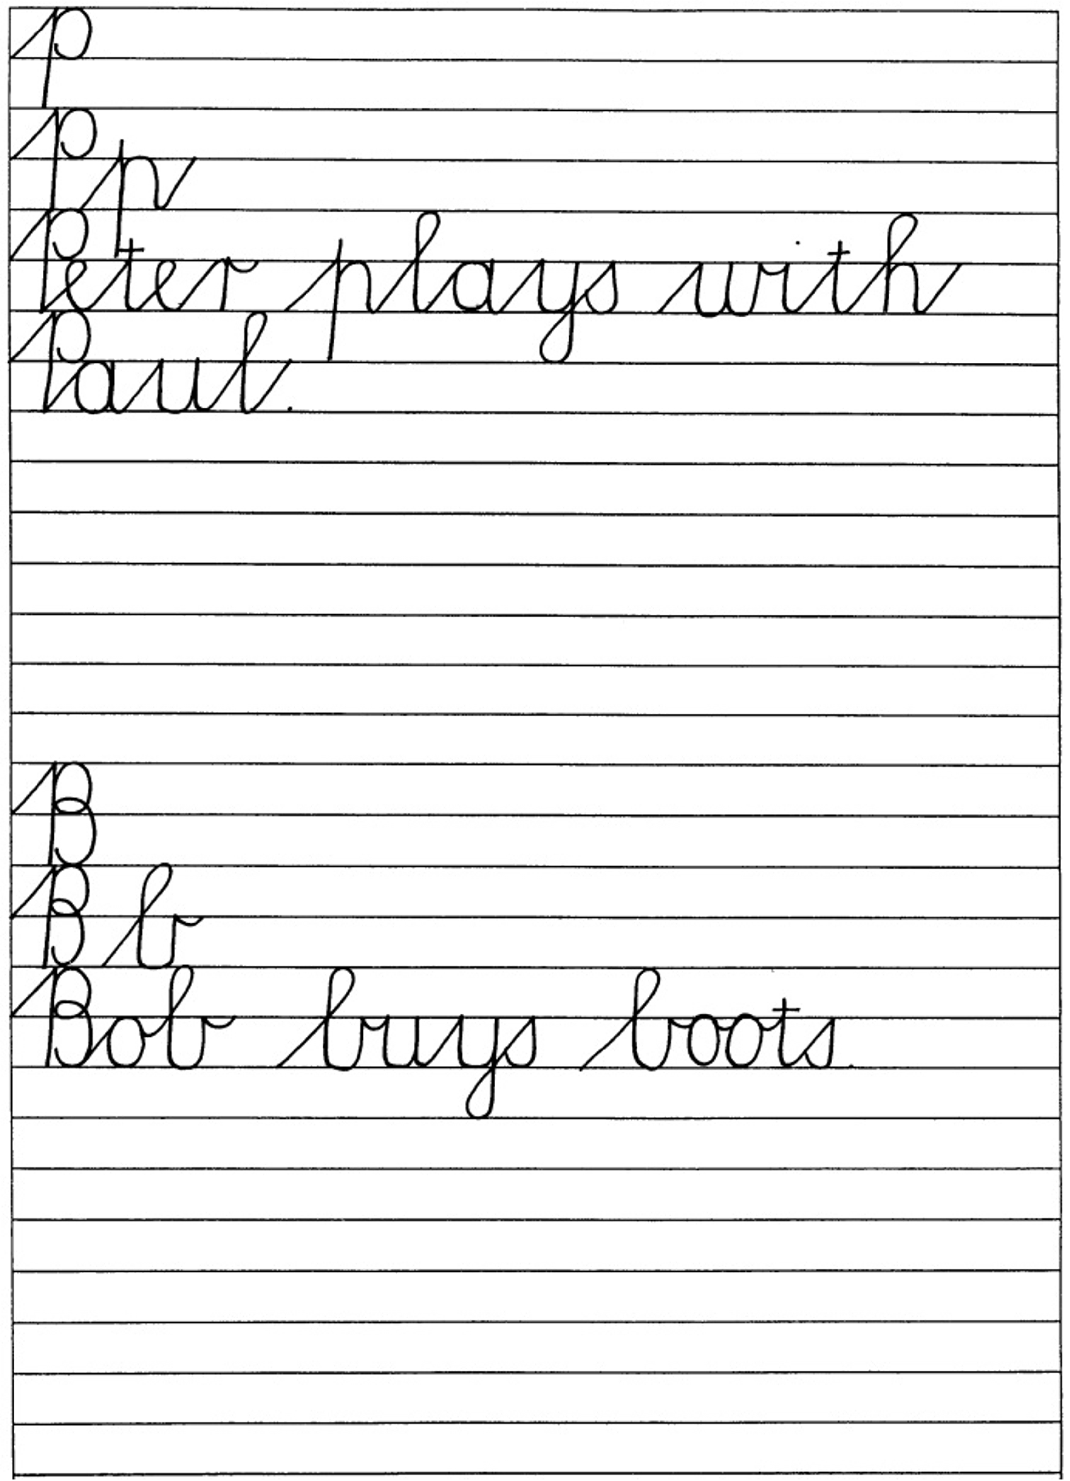 P
P p
Peter plays with
Paul.
B
B b
Bob buys boots.